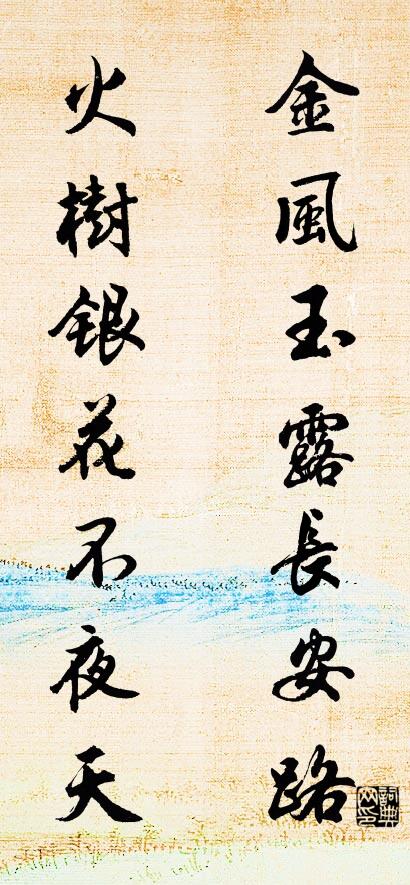 金風玉露長安路
火樹銀花不夜天
詞典网印